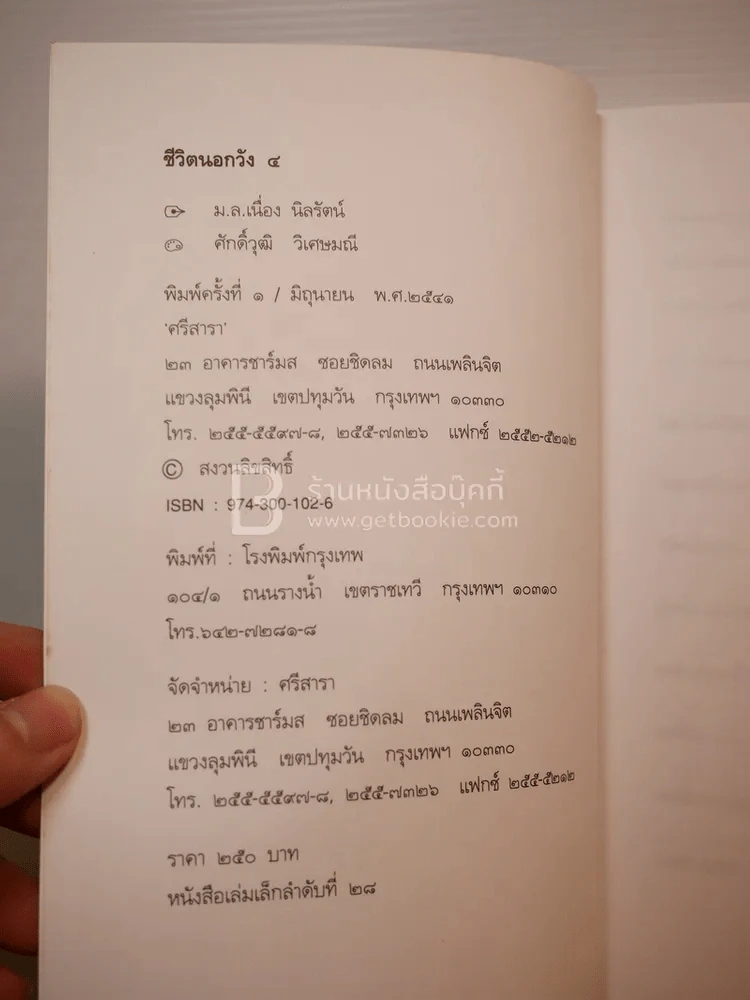 ชีวิตนอกวัง ๔
ม.ล.เนื่อง นิลรัตน์
ศักดิ์วุฒิ วิเศษมณี
พิมพ์ครั้งที่ ๑ / มิถุนายน พ.ศ.๒๕๔๑
'ศรีสารา'
๒๓ อาคารชาร์มส ซอยชิดลม ถนนเพลินจิต
แขวงลุมพินี เขตปทุมวัน กรุงเทพฯ ๑๐๓๓๐
โทร. ๒๕๕-๕๕๙๗-๘, ๒๕๕-๗๓๒๖ แฟกซ์ ๒๕๕๒-๕๒๑๒
© สงวนลิขสิทธิ์
ISBN : 974-300-102-6
ร้านหนังสือบุ๊คกี้
www.getbookie.com
พิมพ์ที่ : โรงพิมพ์กรุงเทพ
๑๐๔/๑ ถนนรางน้ำ เขตราชเทวี กรุงเทพฯ ๑๐๓๑๐
โทร.๖๔๒-๗๒๘๑-๘
จัดจำหน่าย : ศรีสารา
๒๓ อาคารชาร์มส ซอยชิดลม ถนนเพลินจิต
แขวงลุมพินี เขตปทุมวัน กรุงเทพฯ ๑๐๓๓๐
โทร. ๒๕๕-๕๕๙๗-๘, ๒๕๕-๗๓๒๖ แฟกซ์ ๒๕๕-๕๒๑๒
ราคา ๒๕๐ บาท
หนังสือเล่มเล็กลำดับที่ ๒๘